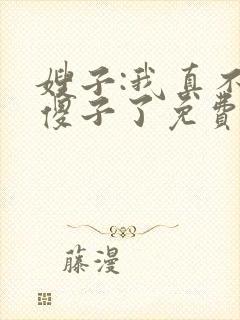 嫂子:我真不
傻子了免费
藤漫